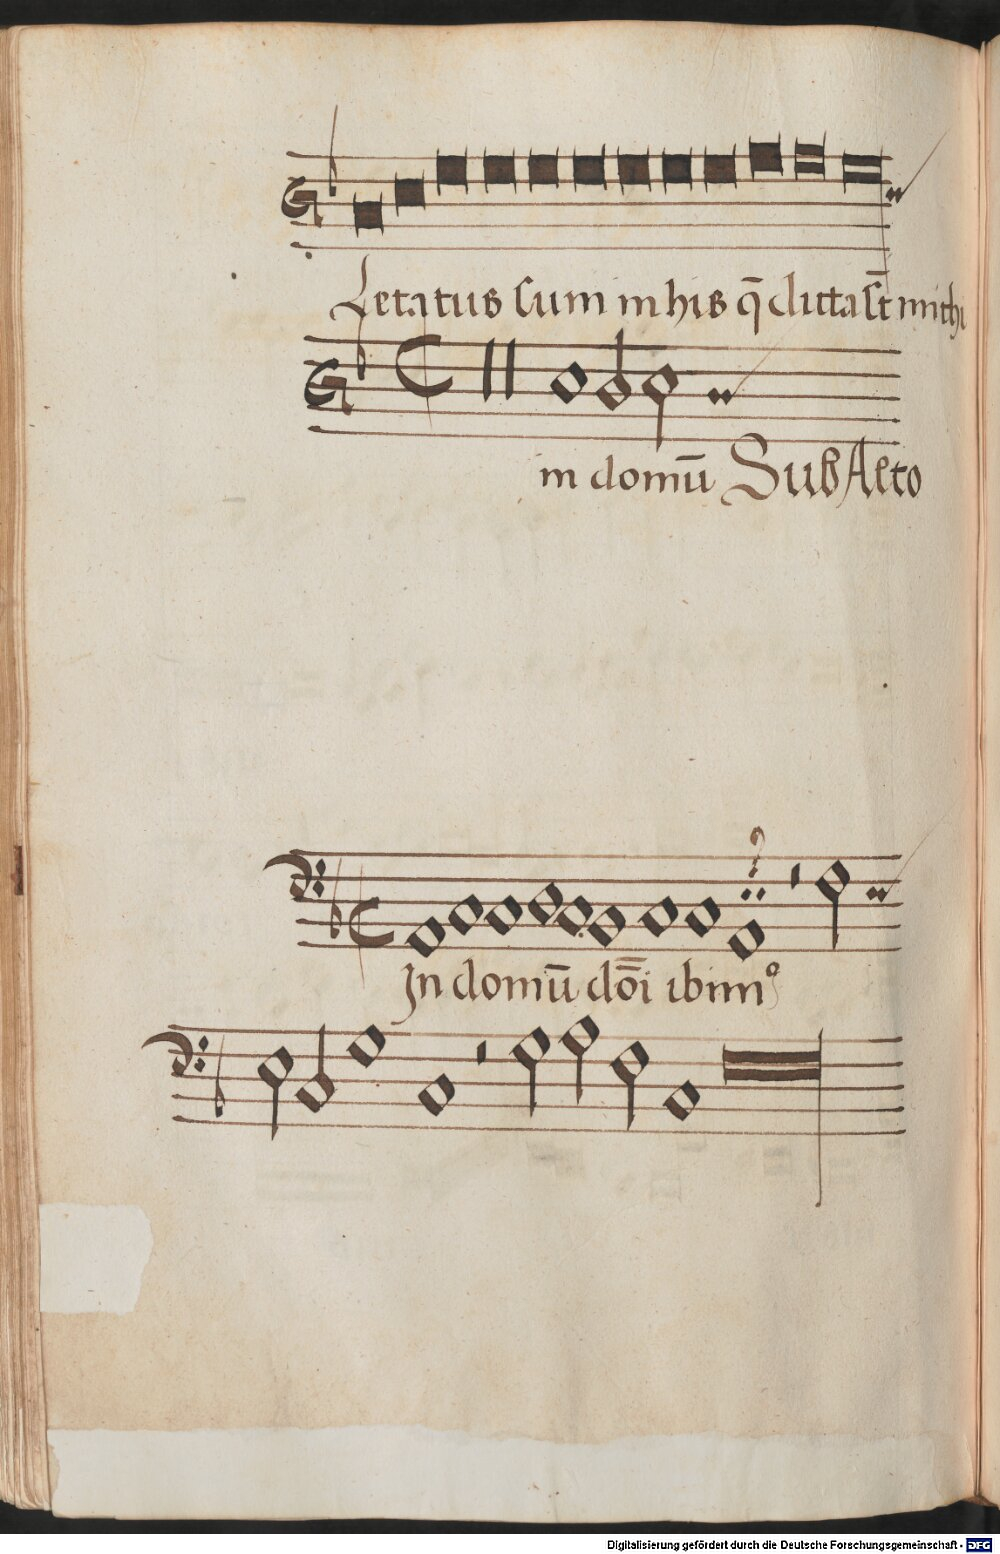 Letatus sum in his q̄ dicta st̄ mithi
in domū Sub Alto
In domū dōi ibimꝰ
Digitalisierung gefördert durch die Deutsche Forschungsgemeinschaft - DFG